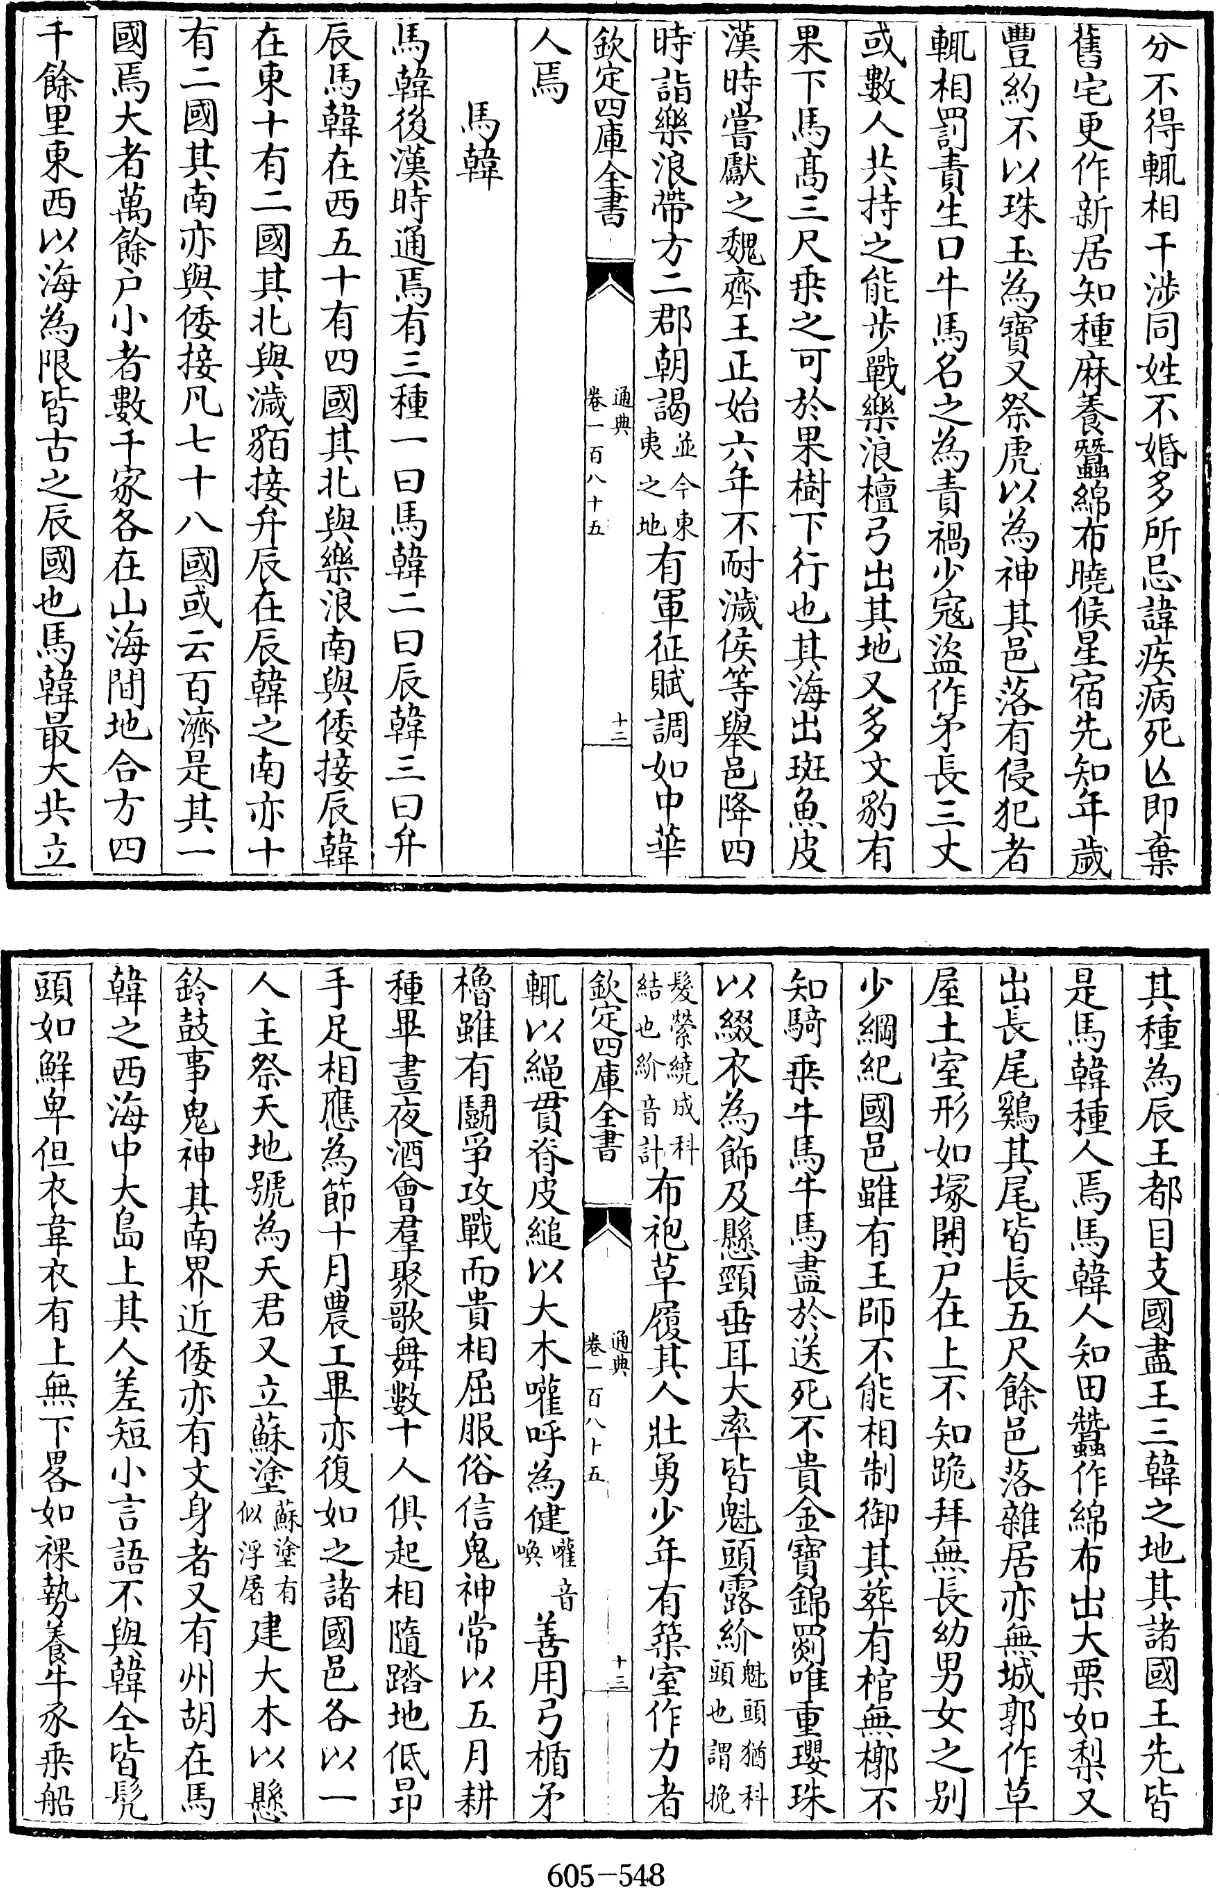 分不得輒相干涉同姓不婚多所忌諱疾病死亾即棄
舊宅更作新居知種麻養蠶綿布曉候星宿先知年歲
豐約不以珠玉為寶又祭虎以為神其邑落有侵犯者
輒相罰責生口牛馬名之為責禍少冦盜作矛長三丈
或數人共持之能步戰樂浪檀弓出其地又多文豹有
果下馬髙三尺乗之可於果樹下行也其海出斑魚皮
漢時嘗獻之魏齊王正始六年不耐濊侯等舉邑降四
時詣樂浪帶方二郡朝謁並今東夷之地有軍征賦調如中華
欽定四庫全書
通典
卷一百八十五
十三
人焉
馬韓
馬韓後漢時通焉有三種一曰馬韓二曰辰韓三曰弁
辰馬韓在西五十有四國其北與樂浪南與倭接辰韓
在東十有二國其北與濊貊接弁辰在辰韓之南亦十
有二國其南亦與倭接凡七十八國或云百濟是其一
國焉大者萬餘户小者數千家各在山海間地合方四
千餘里東西以海為限皆古之辰國也馬韓最大共立
其種為辰王都目支國盡王三韓之地其諸國王先皆
是馬韓種人焉馬韓人知田蠶作綿布出大栗如梨又
出長尾鷄其尾皆長五尺餘邑落雜居亦無城郭作草
屋土室形如塚開户在上不知跪拜無長幼男女之别
少綱紀國邑雖有王師不能相制御其葬有棺無槨不
知騎乗牛馬牛馬盡於送死不貴金寶錦罽唯重瓔珠
以綴衣為飾及懸頸垂耳大率皆魁頭露紒魁頭猶科頭也謂挽
髮縈繞成科結也紒音計布袍草履其人壯勇少年有築室作力者
欽定四庫全書
通典
卷一百八十五
十三
輒以繩貫脊皮縋以大木嚾呼為健嚾音喚善用弓楯矛
櫓雖有鬬爭攻戰而貴相屈服俗信鬼神常以五月耕
種畢晝夜酒會羣聚歌舞數十人俱起相隨踏地低昂
手足相應為節十月農工畢亦復如之諸國邑各以一
人主祭天地號為天君又立蘇塗蘇塗有似浮屠建大木以懸
鈴鼓事鬼神其南界近倭亦有文身者又有州胡在馬
韓之西海中大島上其人差短小言語不與韓仝皆髠
頭如鮮卑但衣韋衣有上無下畧如裸勢養牛豕乗船
605-548